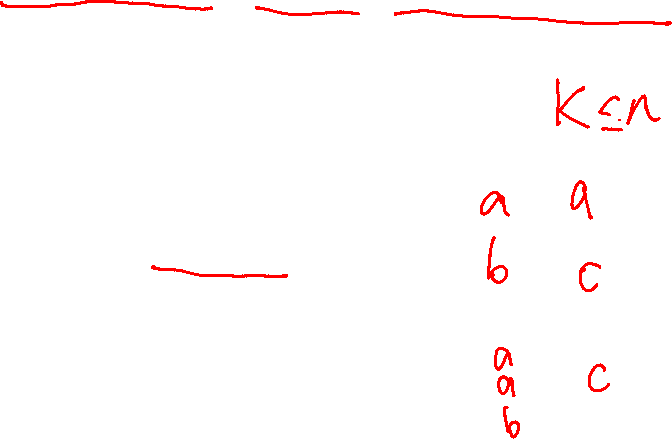 K ≤ n
a a
b c
a
a c
b